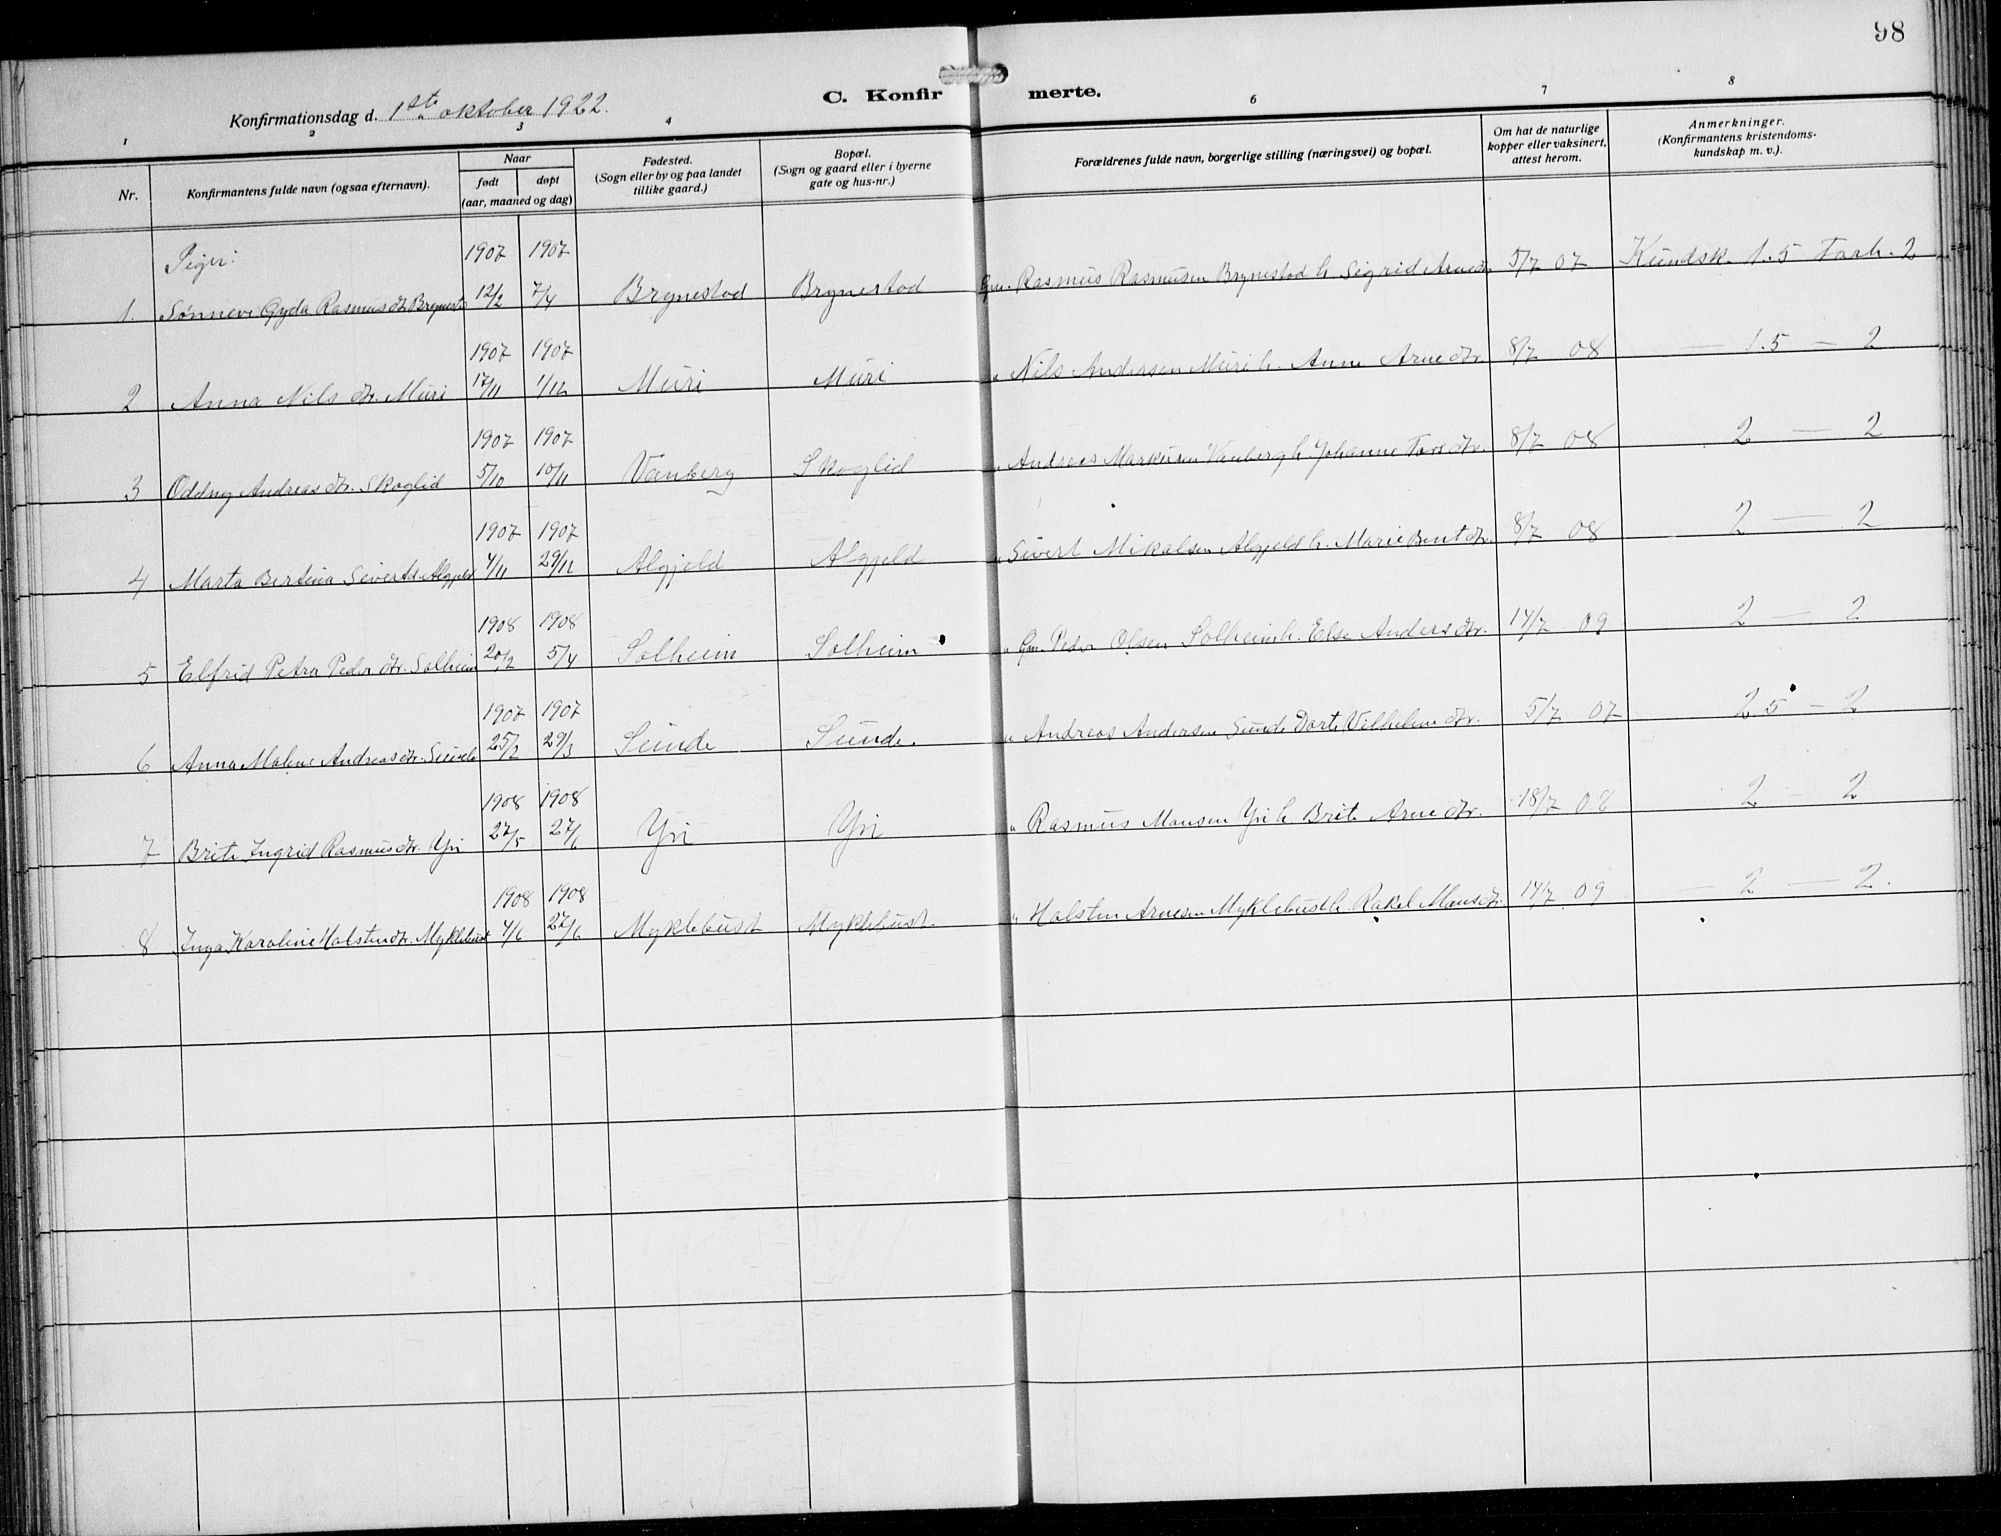 98
Konfirmationsdag d. 1ste oktober 1922.
C. Konfirmerte.
1 2 3 4 6 7 8
Nr.
Konfirmantens fulde navn (ogsaa efternavn).
Naar
født
døpt
(aar, maaned og dag)
Fødested.
(Sogn eller by og paa landet
tillike gaard.)
Bopæl.
(Sogn og gaard eller i byerne
gate og hus-nr.)
Forældrenes fulde navn, borgerlige stilling (næringsvei) og bopæl.
Om hat de naturlige
kopper eller vaksinert,
attest herom.
Anmerkninger.
(Konfirmantens kristendoms-
kundskap m. v.).
Piger:
1907 1907
1. Sønneve Gyda Rasmusdtr. Brynestad 12/2 7/4 Brynestad Brynestad Gm. Rasmus Rasmusen Brynestad h. Sigrid Arnedtr. 5/7 07 Kundsk. 1.5 Forh. 2
1907 1907
2 Anna Nilsdtr. Muri 17/11 1/12 Muri Muri " Nils Andersen Muri h. Anne Arnedtr. 8/7 08 — 1.5 — 2
1907 1907
3 Oddny Andreasdtr. Skoglid 5/10 10/11 Vanberg Skoglid " Andreas Markusen Vanberg h. Johanne Toredtr. 8/7 08 2 — 2
1907 1907
4 Marta Bertina Sivertd. Algjeld 4/11 29/12 Algjeld Algjeld " Sivert Mikalsen Algjeld h. Marie Bentdtr. 8/7 08 2 — 2
1908 1908
5 Elfrid Petra Pederdtr. Solheim 20/2 5/4 Solheim Solheim " Gm. Peder Olsen Solheim h. Else Andersdtr. 14/7 09 2 — 2
1907 1907
6 Anna Malene Andreasdtr. Sunde 25/2 29/3 Sunde Sunde. " Andreas Andersen Sunde Dorte Vilhelmedtr. 5/7 07 2.5 — 2
1908 1908
7 Brite Ingrid Rasmusdtr. Yri 27/5 27/6 Yri Yri " Rasmus Monsen Yri h Brite Arnedtr. 18/7 08 2 - 2
1908 1908
8 Inga Karoline Holstendtr. Myklebust 4/6 27/6 Myklebust Myklebust. " Holsten Arnesen Myklebust h. Rakel Monsdtr. 14/7 09 — 2 — 2.